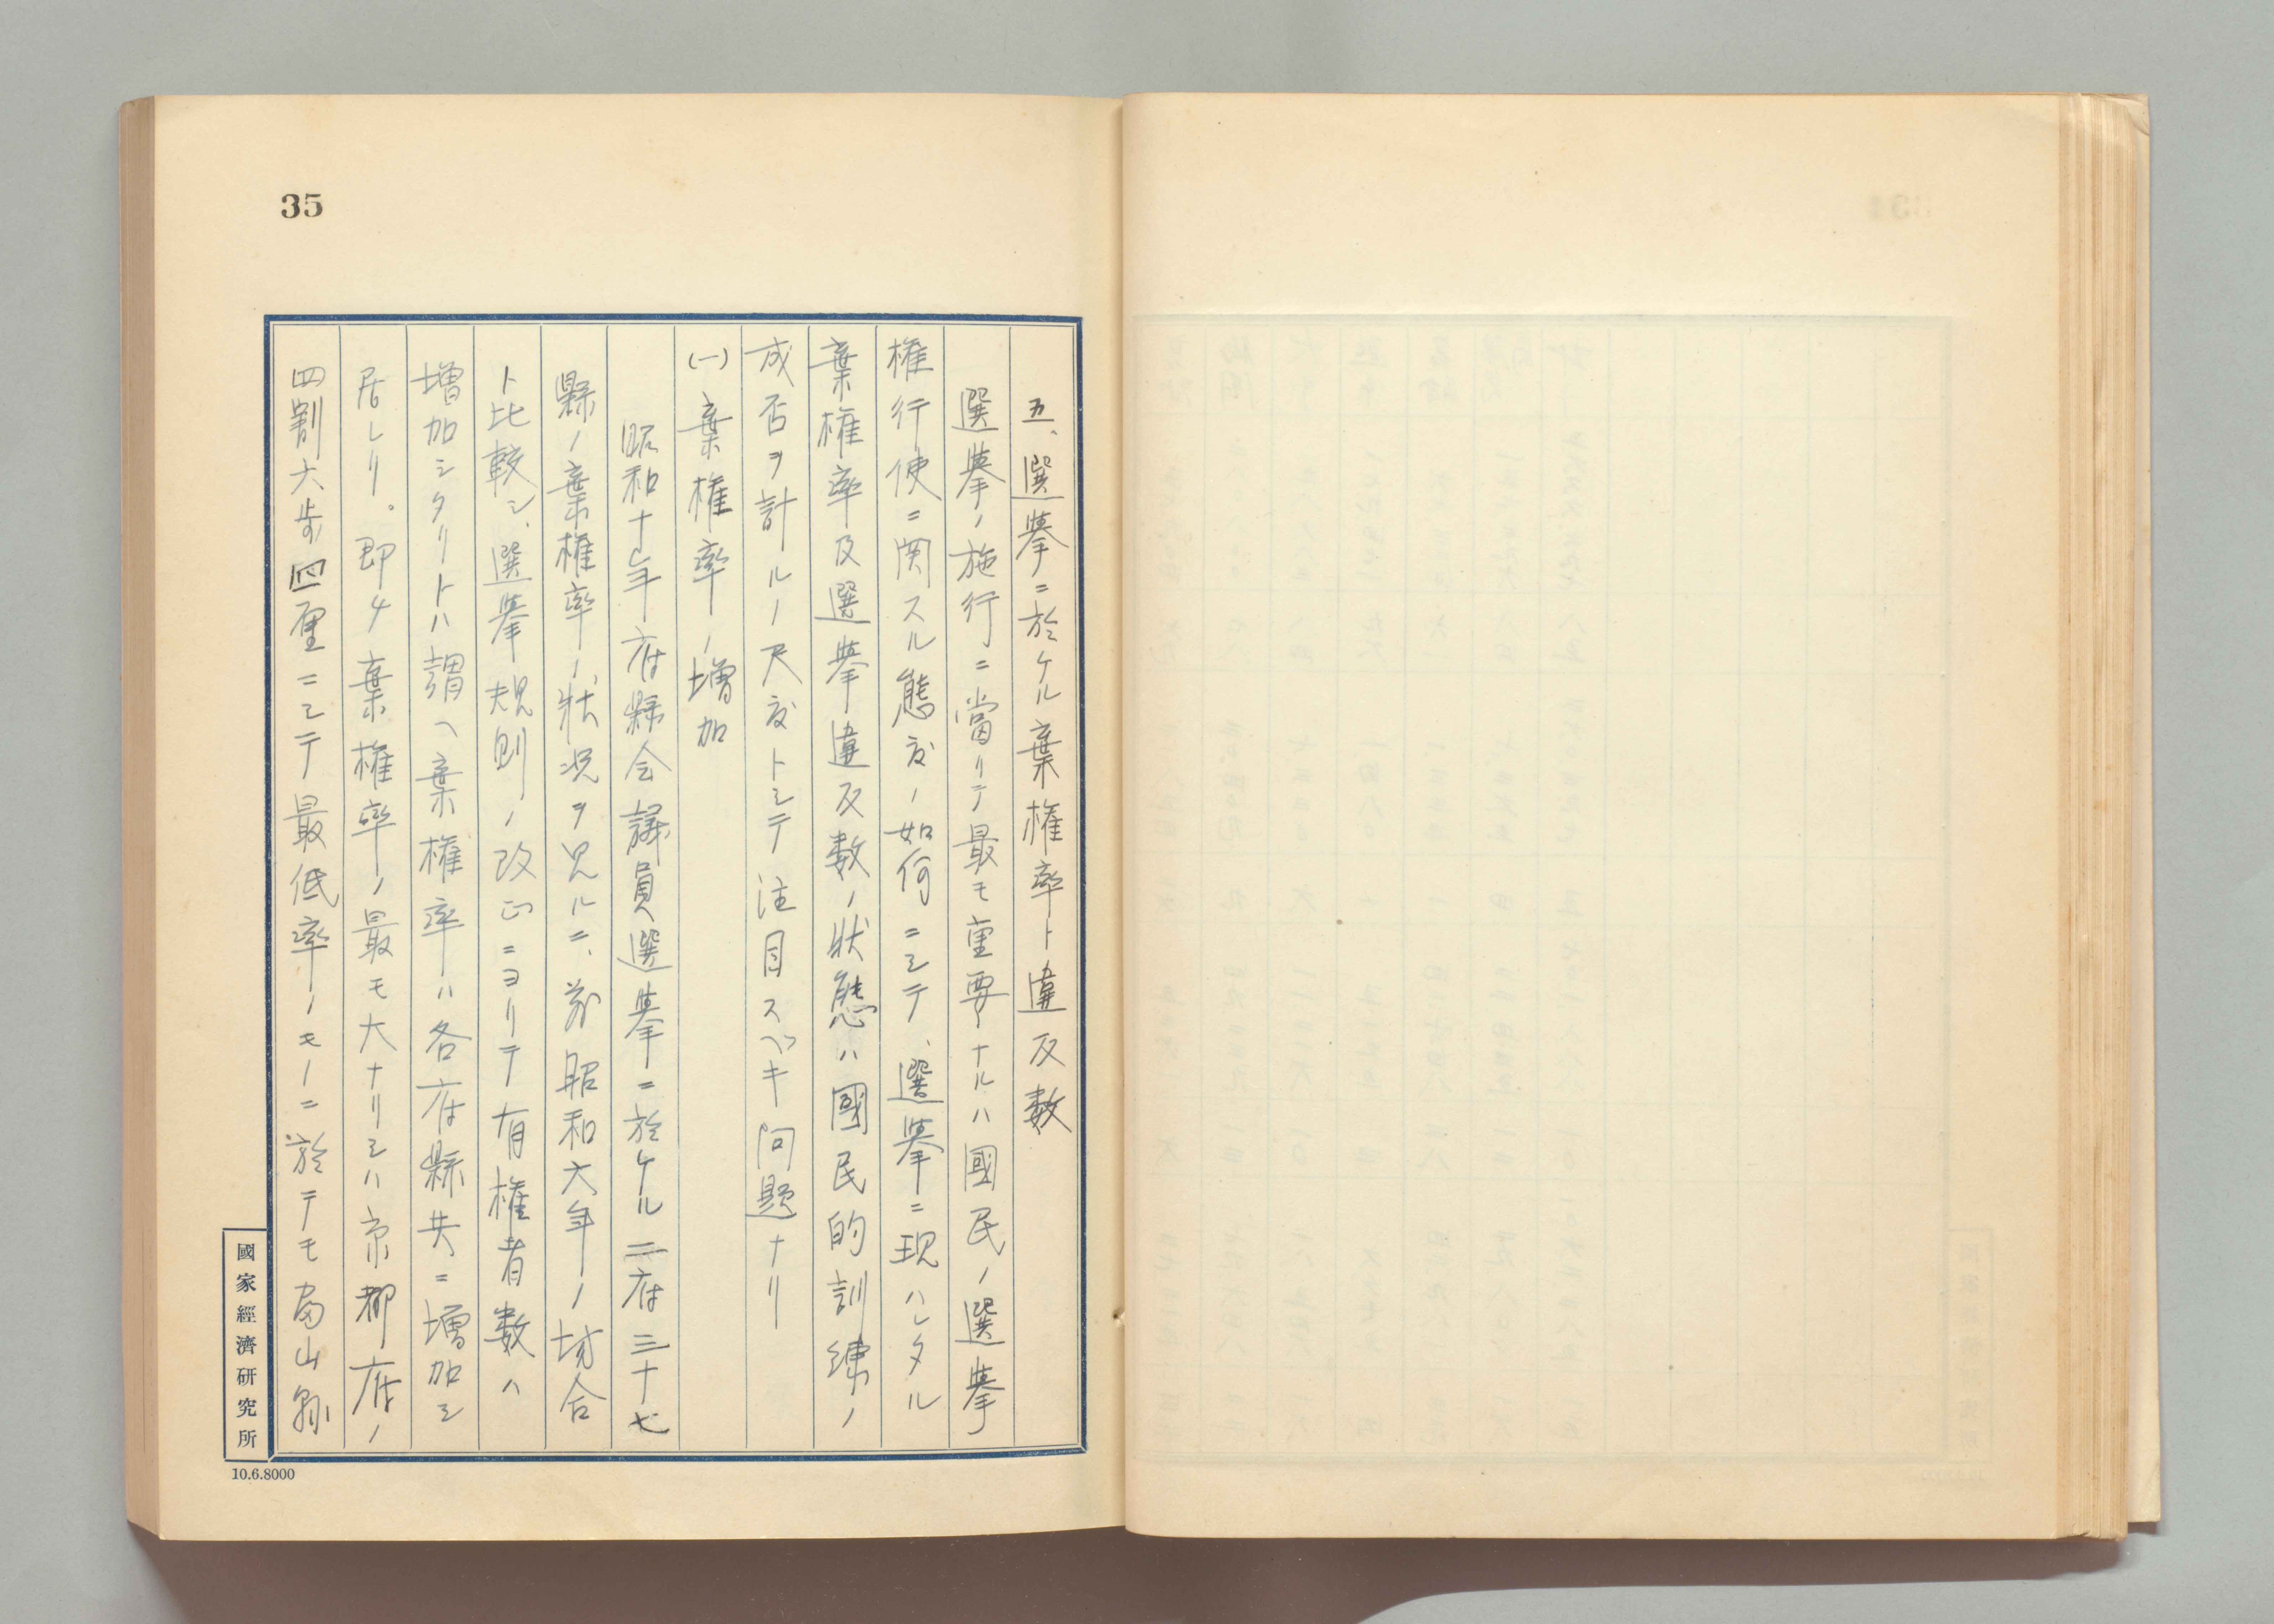 35
五、選挙ニ於ケル棄権率ト違反数
選挙ノ施行ニ當リテ最モ重要ナルハ國民ノ選挙
権行使ニ関スル態度ノ如何ニシテ、選挙ニ現ハレタル
棄権率及選挙違反数ノ状態ハ國民的訓練ノ
成否ヲ計ルノ尺度トシテ注目スベキ問題ナリ
(一)棄権率ノ増加
昭和十年府縣会議員選挙ニ於ケル二府三十七
縣ノ棄権率ノ状況ヲ見ルニ、前昭和六年ノ場合
ト比較シ、選挙規則ノ改正ニヨリテ有権者数ハ
増加シタリトハ謂ヘ棄権率ハ各府縣共ニ増加シ
居レリ。即チ棄権率ノ最モ大ナリシハ京都府ノ
四割六歩四厘ニシテ最低率ノモノニ於テモ富山縣
國家經濟研究所
10.6.8000